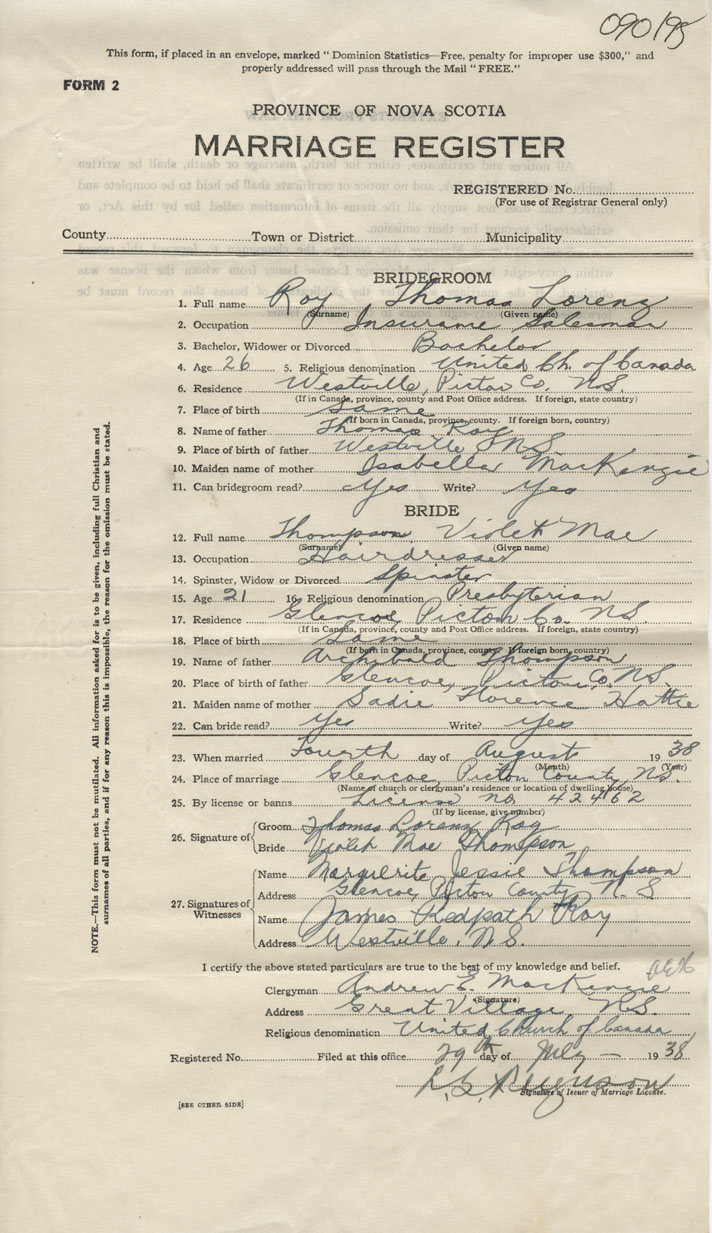 090195
This form, if placed in an envelope, marked " Dominion Statistics—Free, penalty for improper use $300," and
properly addressed will pass through the Mail " FREE."
FORM 2
PROVINCE OF NOVA SCOTIA
MARRIAGE REGISTER
REGISTERED No.
(For use of Registrar General only)
County Town or District Municipality
BRIDEGROOM
1. Full name Roy Thomas Lorenz
(Surname) (Given name)
2. Occupation Insurance Salesman
3. Bachelor, Widower or Divorced Bachelor
4. Age 26 5. Religious denomination United Ch. of Canada
6. Residence Westville, Pictou Co. N.S.
(If in Canada, province, county and Post Office address. If foreign, state country)
7. Place of birth Same
(If born in Canada, province, county. If foreign born, country)
8. Name of father Thomas Roy
9. Place of birth of father Westville N.S.
10. Maiden name of mother Isabella MacKenzie
11. Can bridegroom read? Yes Write? Yes
BRIDE
12. Full name Thompson, Violet Mae
(Surname) (Given name)
13. Occupation Hairdresser
14. Spinster, Widow or Divorced Spinster
15. Age 21 16. Religious denomination Presbyterian
17. Residence Glencoe, Pictou Co. N.S.
(If in Canada, province, county and Post Office address. If foreign, state country)
18. Place of birth Same
(If born in Canada, province, county. If foreign born, country)
19. Name of father Archibald Thompson
20. Place of birth of father Glencoe, Pictou Co. N.S.
21. Maiden name of mother Sadie Florence Hattie
22. Can bride read? Yes Write? Yes
23. When married Fourth day of August 1938
(Month) (Year)
24. Place of marriage Glencoe, Pictou County, N.S.
(Name of church or clergyman's residence or location of dwelling house)
25. By license or banns License no. 42462
(If by license, give number)
26. Signature of
Groom Thomas Lorenz Roy
Bride Violet Mae Thompson
27. Signatures of Witnesses
Name Marguerite Jessie Thompson
Address Glencoe, Pictou County N.S
Name James Redpath Roy
Address Westville, N.S.
I certify the above stated particulars are true to the best of my knowledge and belief.
Clergyman Andrew E. MacKenzie
(Signature)
Address Great Village N.S.
Religious denomination United Church of Canada
Registered No. Filed at this office 29th day of July — 1938
Signature of Issuer of Marriage License.
[SEE OTHER SIDE]
NOTE.—This form must not be mutilated. All information asked for is to be given, including full Christian and
surnames of all parties, and if for any reason this is impossible, the reason for the omission must be stated.